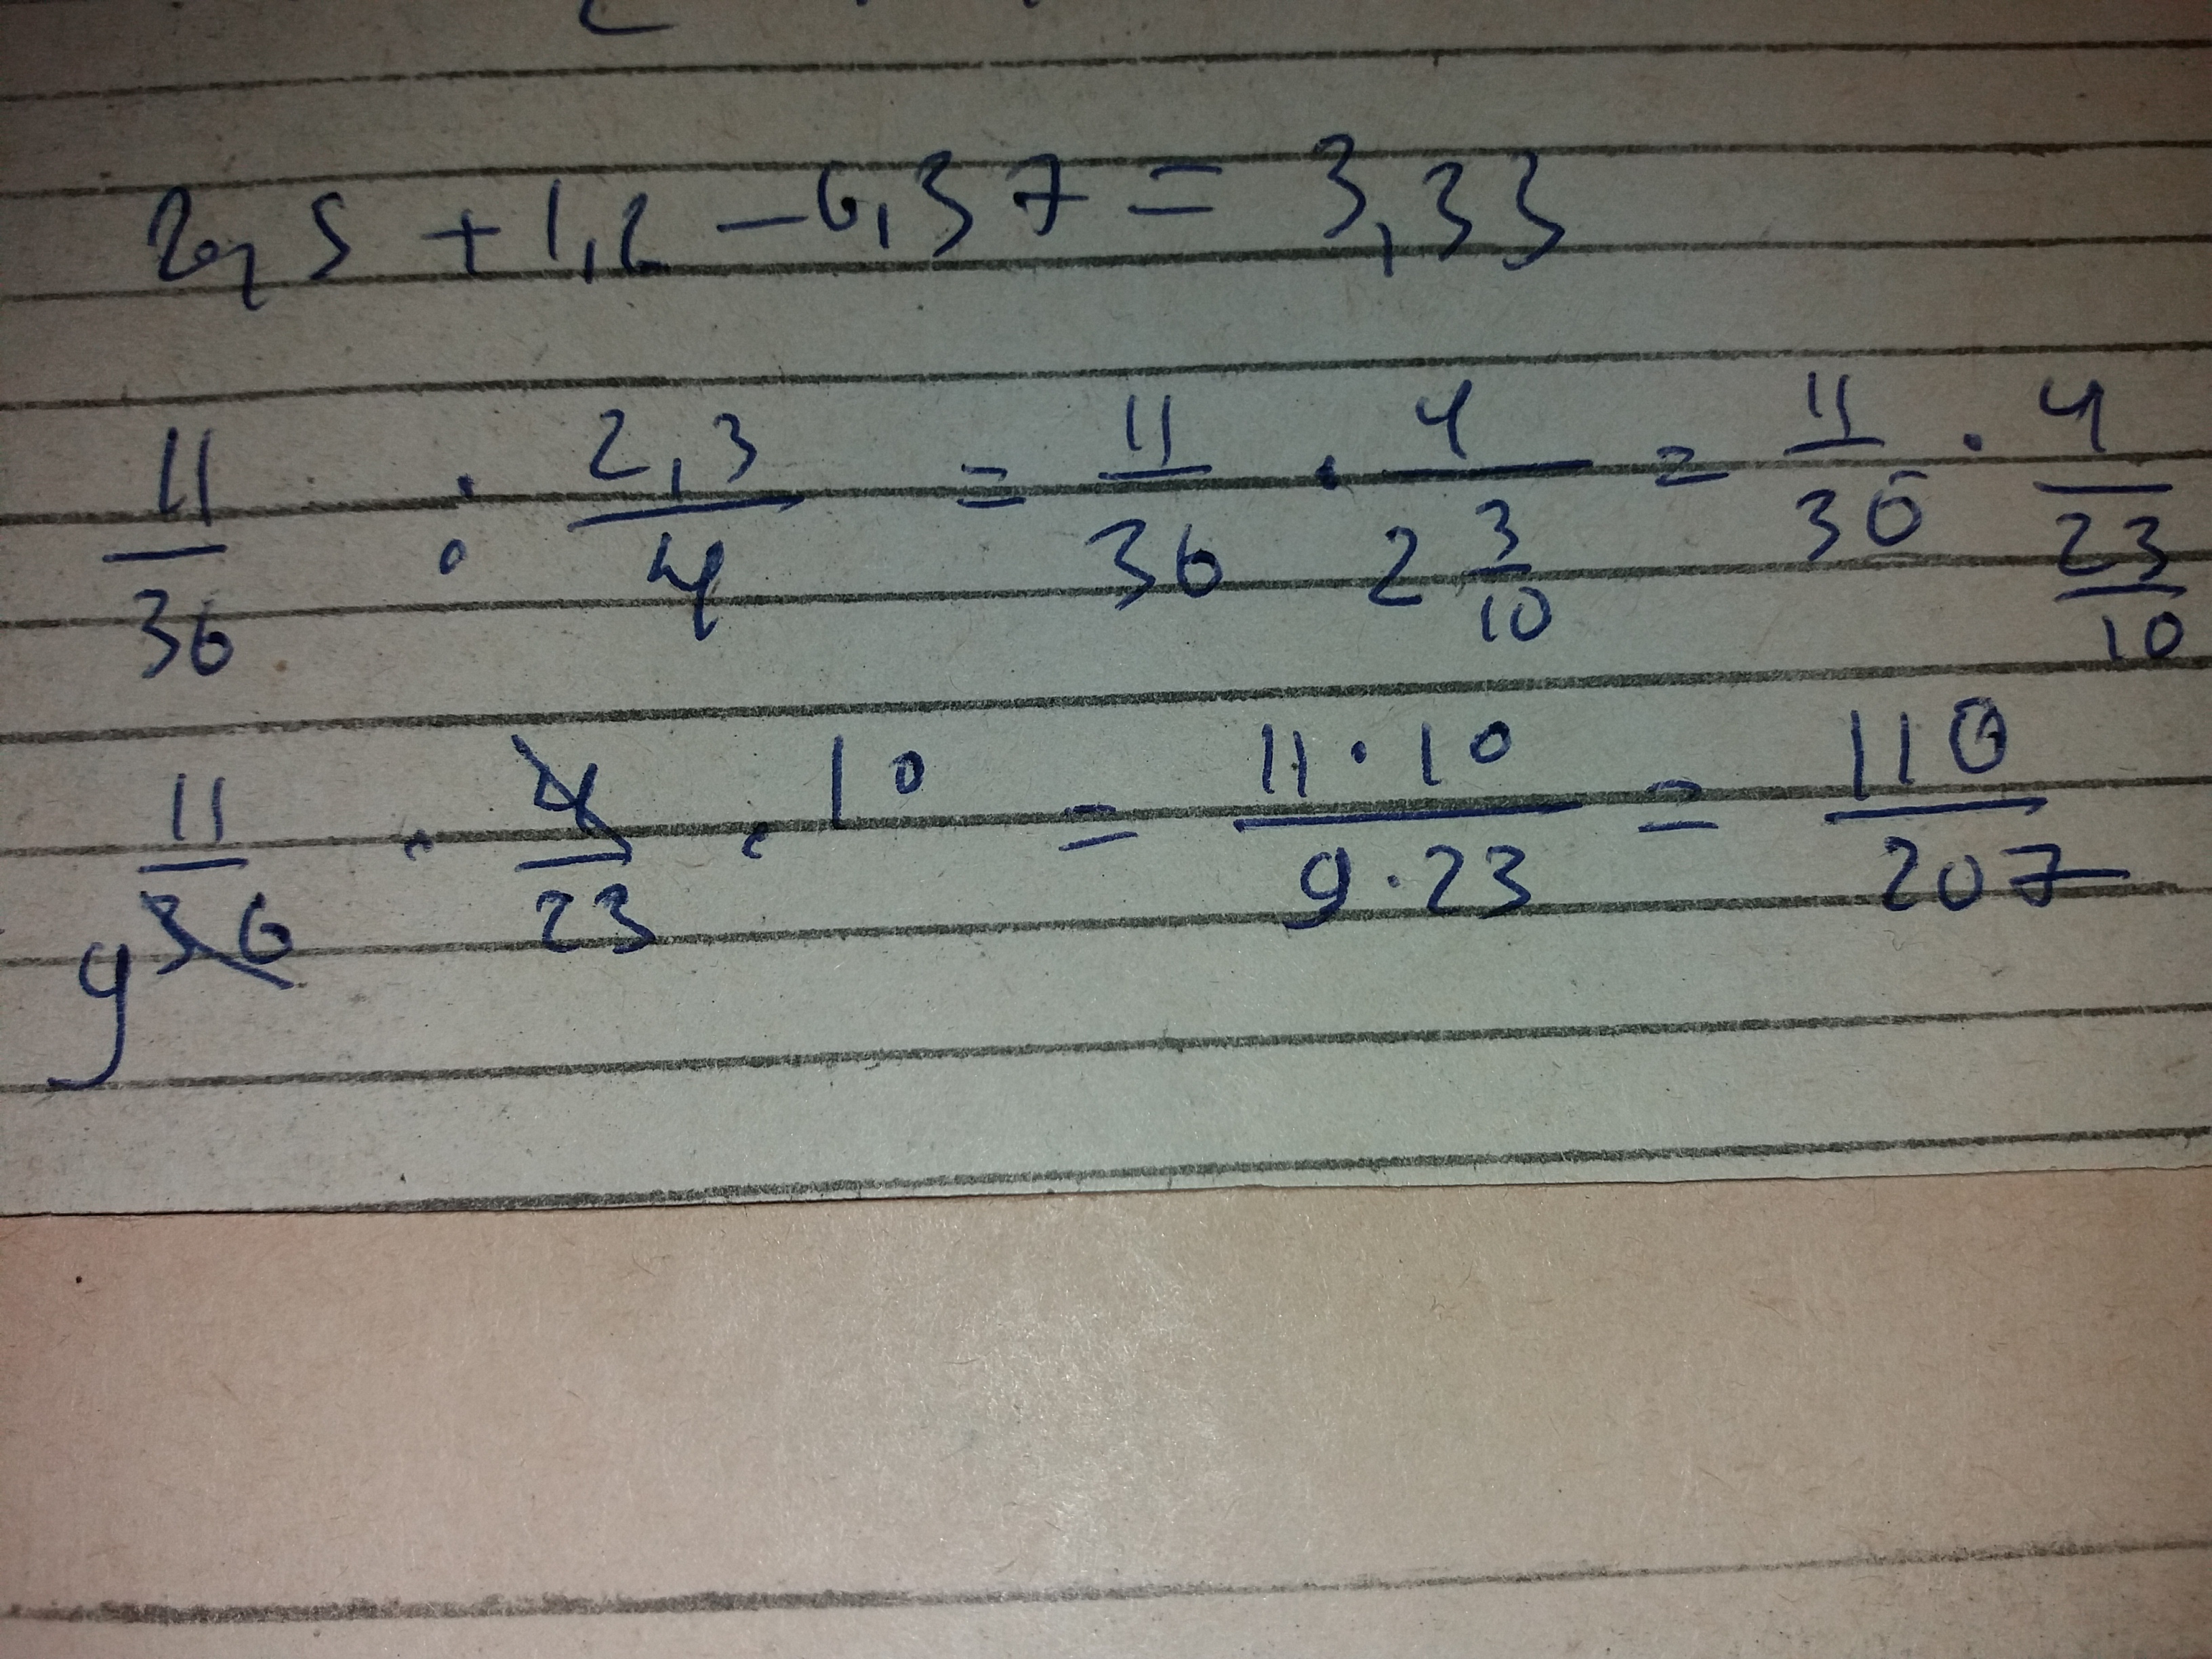 2,5 + 1,2 - 0,37 = 3,33
11/36 : 2,3/4 = 11/36 · 4/(2 3/10) = 11/36 · 4/(23/10)
11/36 9 · 4/23 · 10 = 11·10/9·23 = 110/207